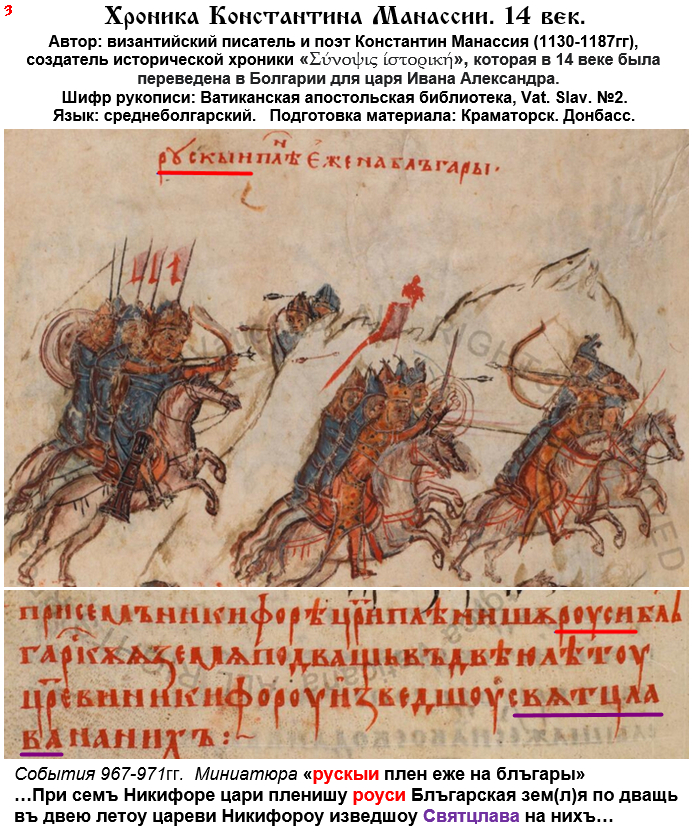 3
Хроника Константина Манассии. 14 век.
Автор: византийский писатель и поэт Константин Манассия (1130-1187гг),
создатель исторической хроники «Σύνοψις ίστορική», которая в 14 веке была
переведена в Болгарии для царя Ивана Александра.
Шифр рукописи: Ватиканская апостольская библиотека, Vat. Slav. №2.
Язык: среднеболгарский. Подготовка материала: Краматорск. Донбасс.
рꙋскыи плѣⷩ еже на блъгары·
при семъ никифорѣ цр҃и плѣнишѫ роуси блъ
гарскѫѫ землѧ по дващь въ двѣю лѣтоу
цр҃еви никифороу изведшоу свѧтцла
ва на нихъ:
События 967-971гг. Миниатюра «рускыи плен еже на блъгары»
...При семъ Никифоре цари пленишу роуси Блъгарская зем(л)я по дващь
въ двею летоу цареви Никифороу изведшоу Святцлава на нихъ...